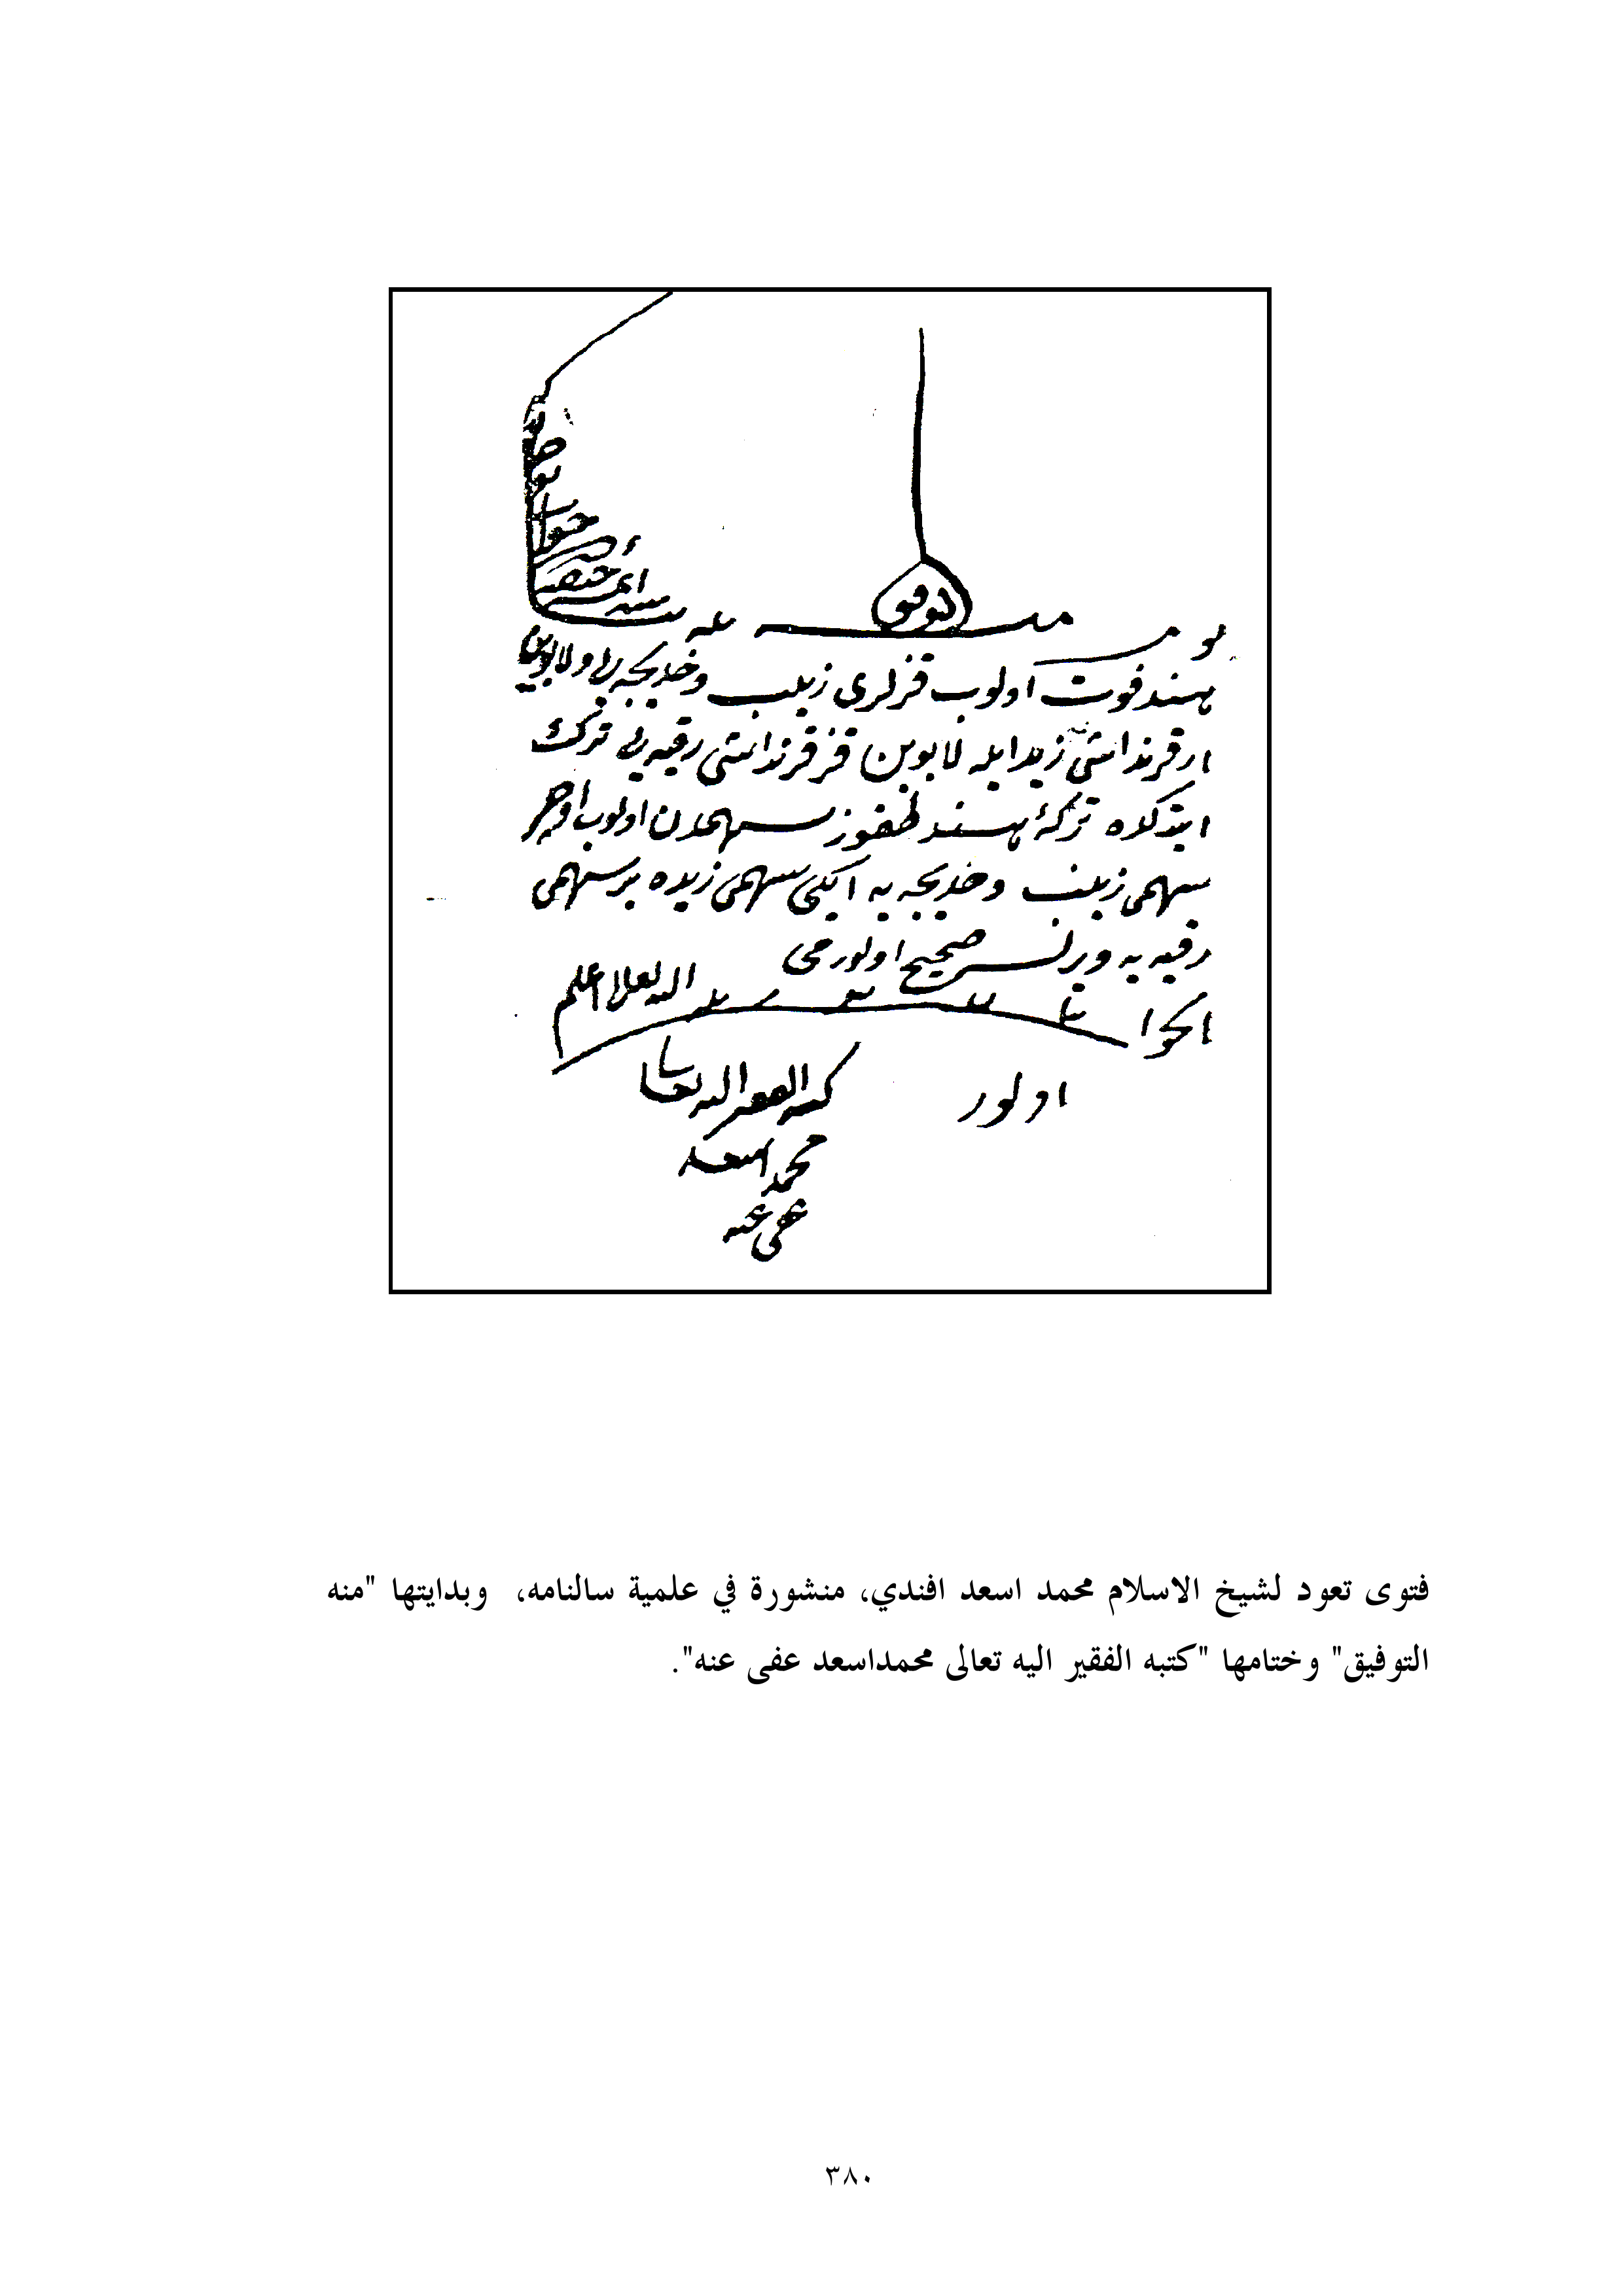 منه التوفيق
هند فوت اولوب قزلرى زينب و خديجه يى و لابوين
ار قرنداشى زيد ايله لابوين قز قرنداشى رقيه يى ترك
ايتدكده تركهٔ هند طقوز سهمدن اولوب اوچر
سهمى زينب و خديجه يه ايكى سهمى زيده بر سهمى
رقيه يه ويرلسه صحيح اولورمى
الجواب الله تعالى اعلم
اولور
كتبه الفقير اليه تعالى
محمد اسعد
عفى عنه
فتوى تعود لشيخ الاسلام محمد اسعد افندي، منشورة في علمية سالنامه، وبدايتها "منه
التوفيق" وختامها "كتبه الفقير اليه تعالى محمداسعد عفى عنه".
٣٨٠